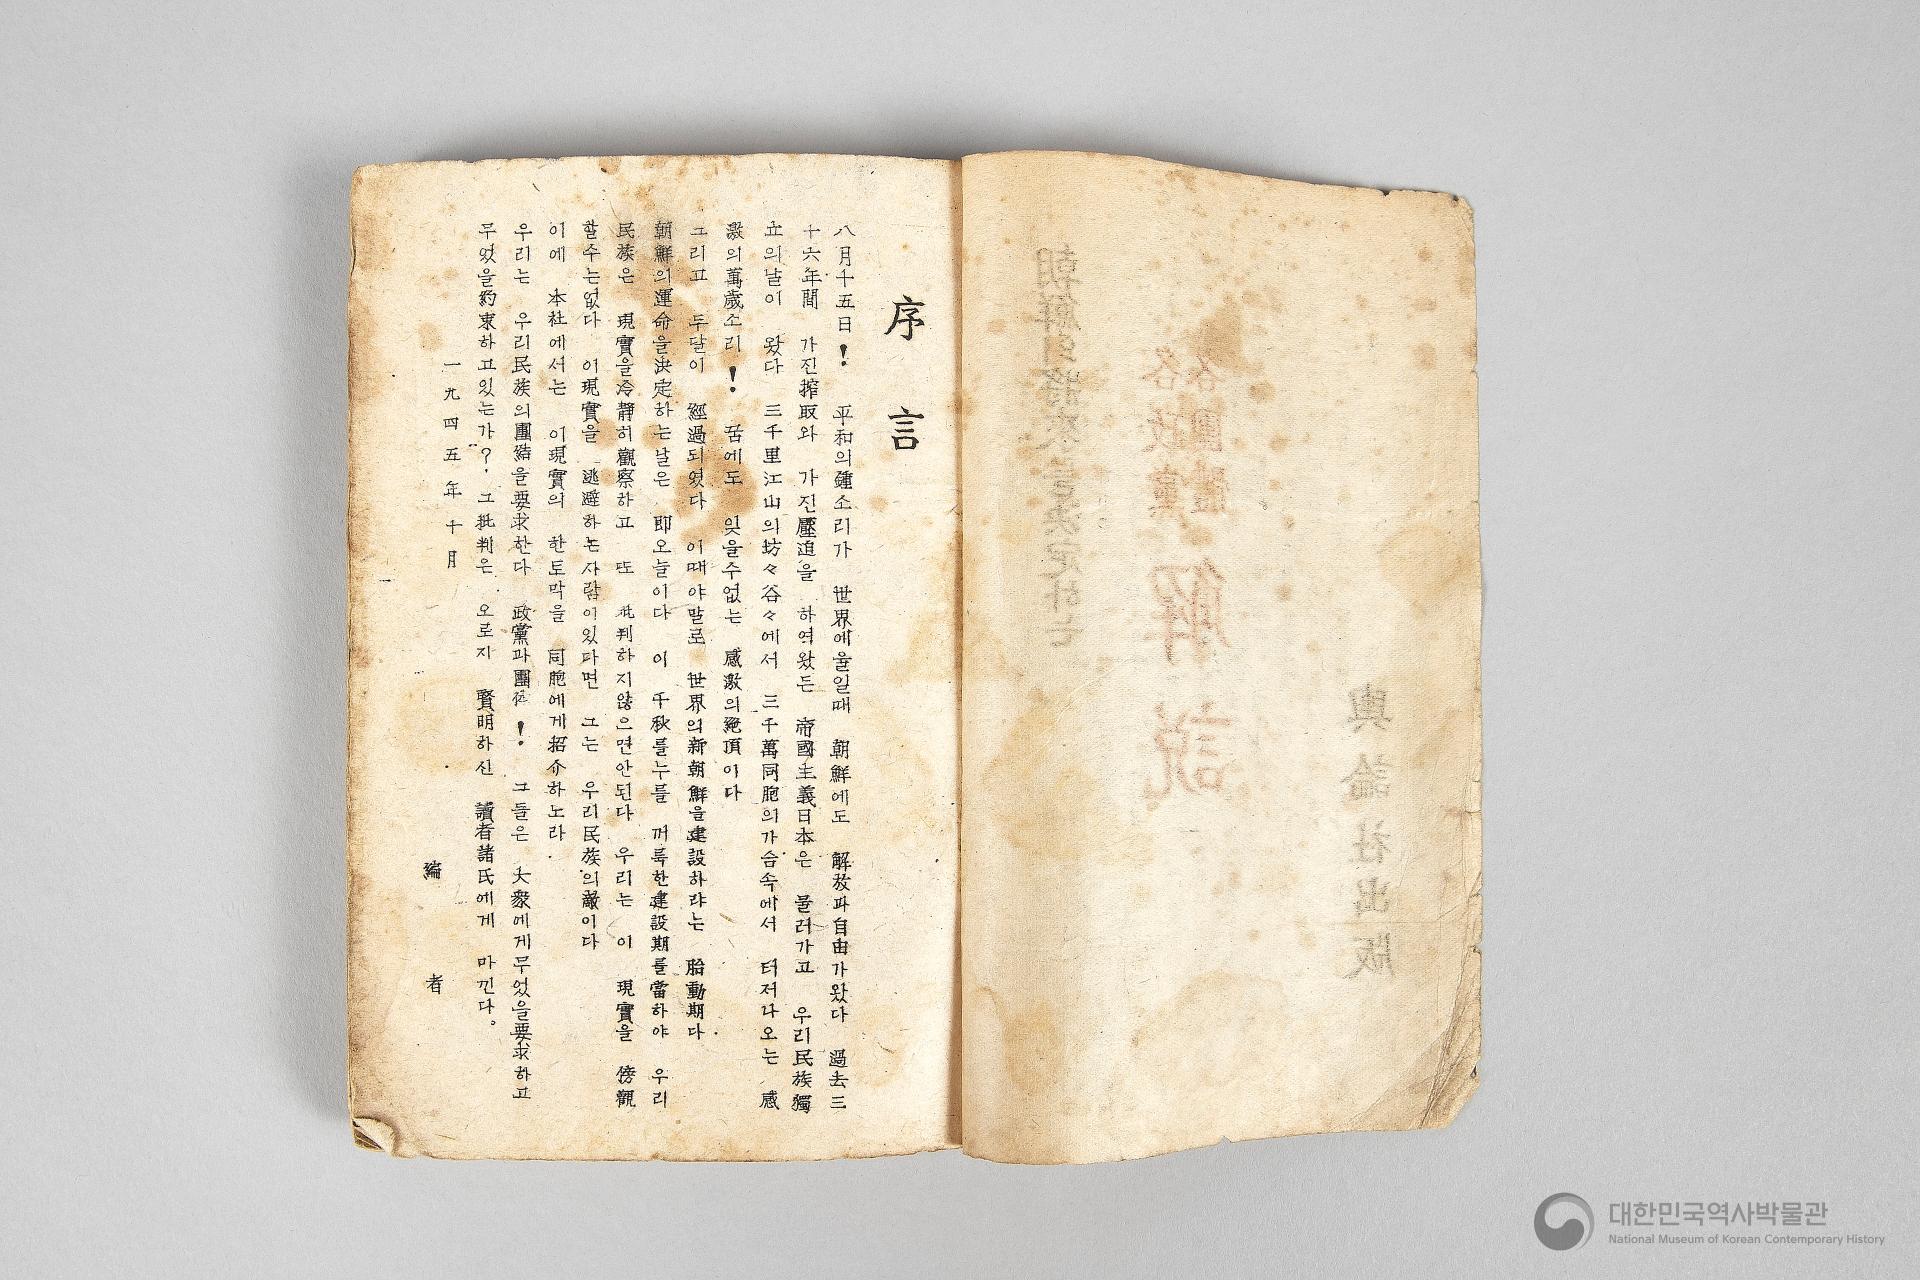 序言
八月十五日! 平和의鍾소리가 世界에울일때 朝鮮에도 解放과自由가왔다 過去三
十六年間 가진搾取와 가진壓迫을 하여왔든 帝國主義日本은 물러가고 우리民族獨
立의날이 왔다 三千里江山의坊々谷々에서 三千萬同胞의가슴속에서 터저나오는 感
激의萬歲소리! 꿈에도 잊을수없는 感激의絶頂이다
그리고 두달이 經過되였다 이때야말로 世界의新朝鮮을建設하랴는 胎動期다
朝鮮의運命을決定하는날은 即오늘이다 이 千秋를누를 꺼룩한建設期를當하야 우리
民族은 現實을冷靜히觀察하고 또 批判하지않으면안된다 우리는 이 現實을 傍觀
할수는없다 이現實을 逃避하는사람이있다면 그는 우리民族의敵이다
이에 本社에서는 이現實의 한토막을 同胞에게招介하노라.
우리는 우리民族의團結을要求한다 政黨과團体! 그들은 大衆에게무었을要求하고
무었을約束하고있는가? 그批判은 오로지 賢明하신 讀者諸氏에게 마낀다。
一九四五年十月
編者
朝鮮의將來를
各政黨
各團體
解說
輿論社出版
대한민국역사박물관
National Museum of Korean Contemporary History